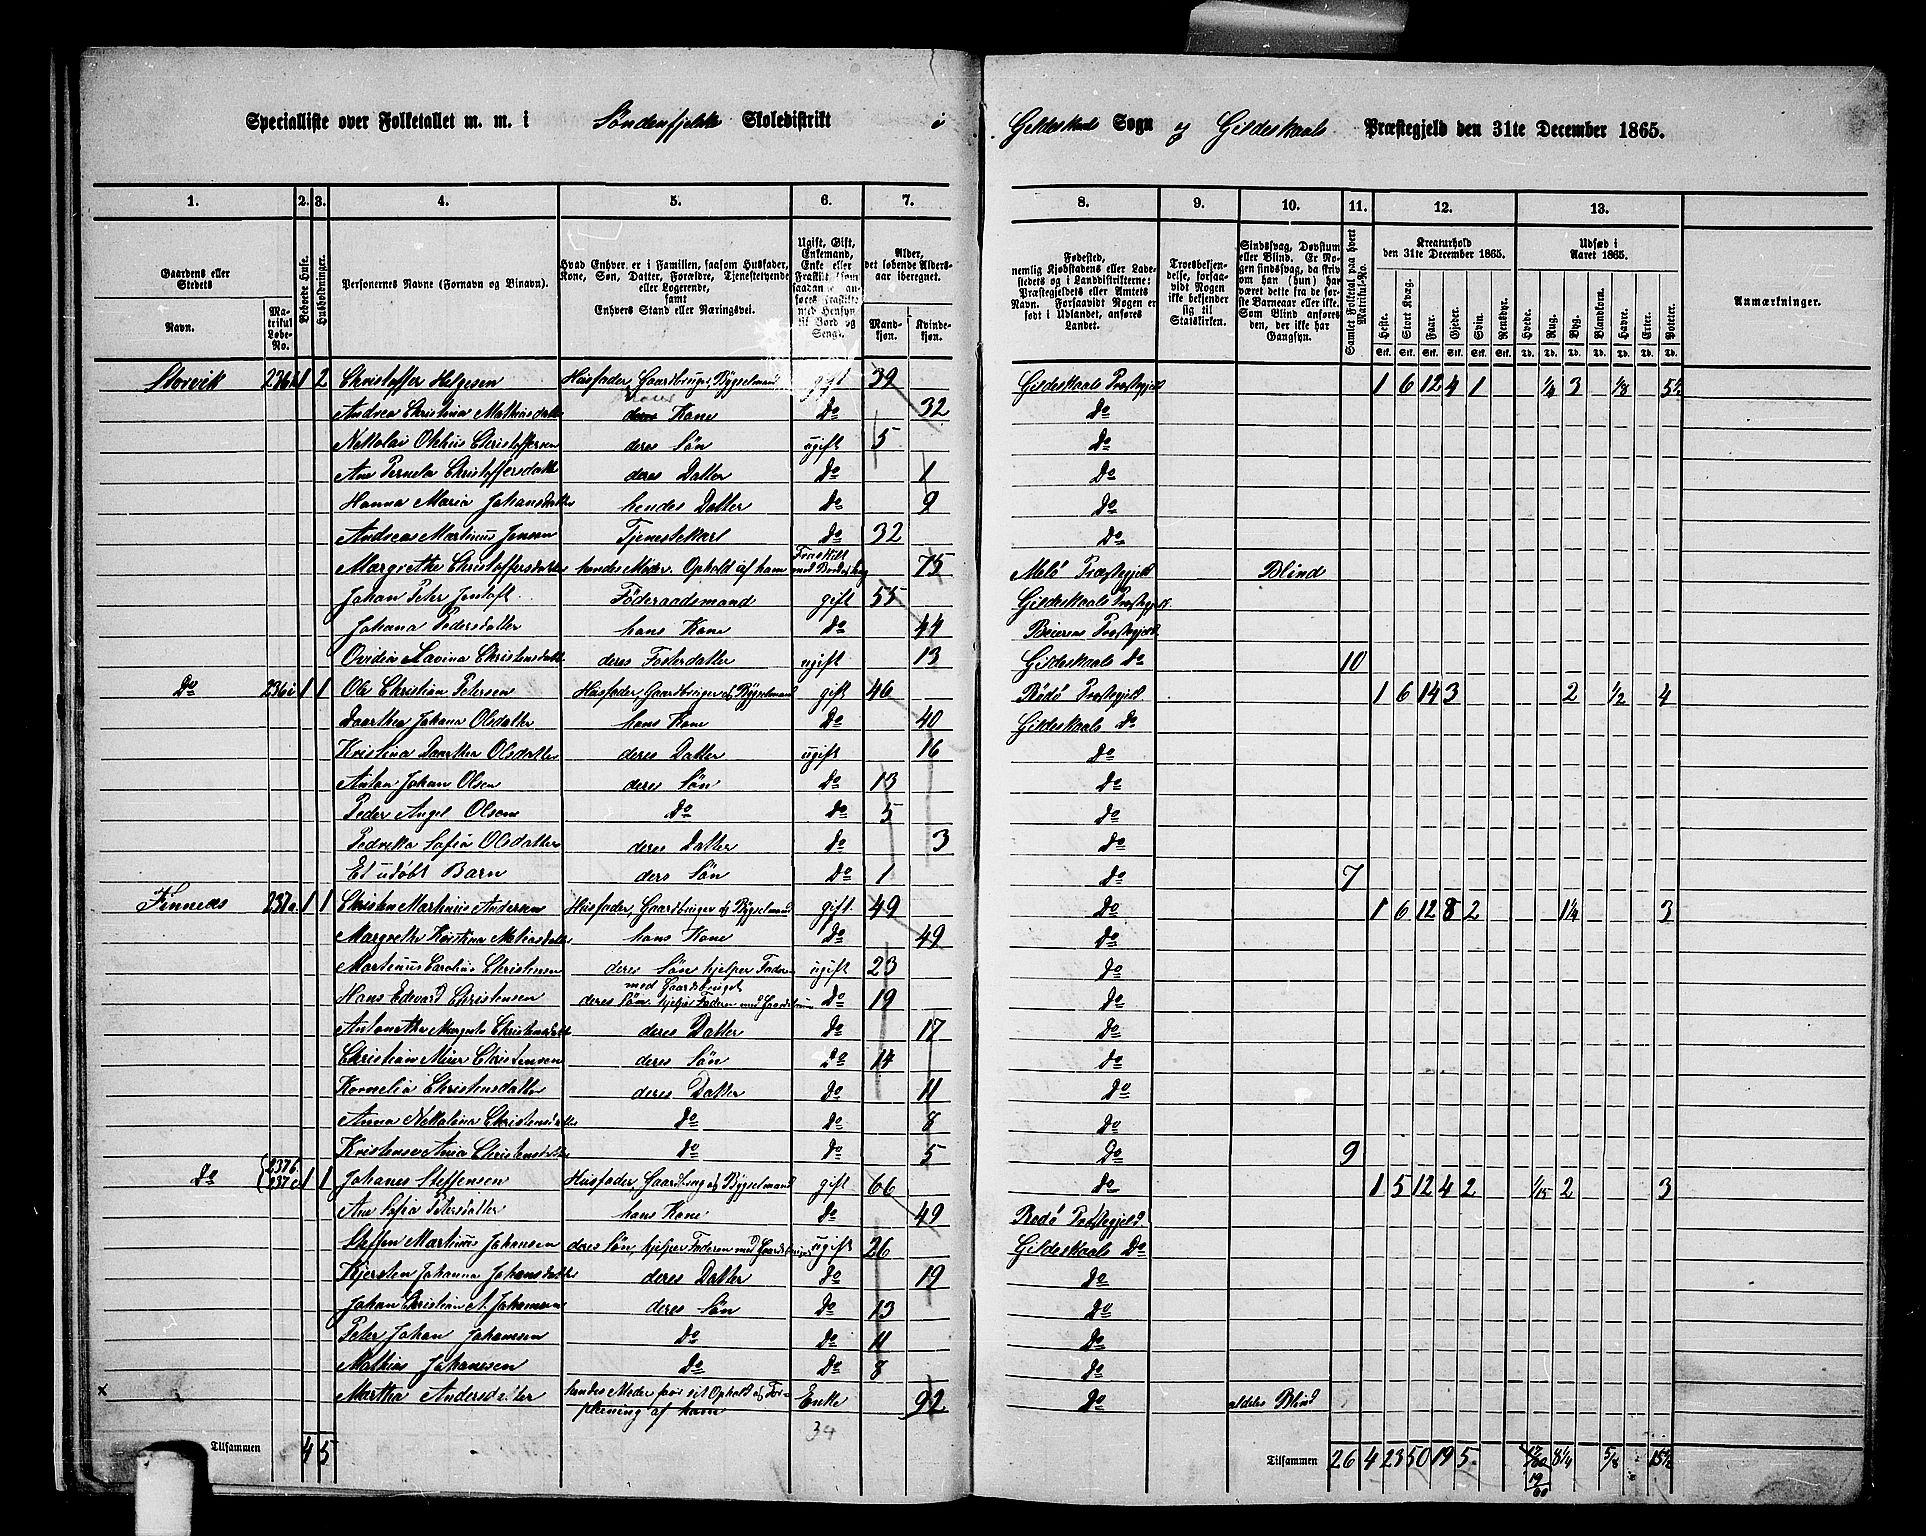 Specialliste over Folketallet m. m. i Söndenfjelske Skoledistrikt i Gildeskaals Sogn og Gildeskaals Præstegjeld den 31te December 1865.
1. 2. 3. 4. 5. 6. 7. 8. 9. 10. 11. 12. 13.
Gaardens eller Stedets
Navn.
Matrikul Løbe-No.
Beboede Huse.
Husholdninger.
Personernes Navne (Fornavn og Binavn).
Hvad Enhver er i Familien, saasom Husfader, Kone, Søn, Datter, Forældre, Tjenestetyende eller Logerende,
samt
Enhvers Stand eller Næringsvei.
Ugift, Gift, Enkemand, Enke eller Fraskilt (som saadanne anføres Fraskilte med Hensyn til Bord og Seng).
Alder, det løbende Alders-aar iberegnet.
Mandkjøn.
Kvindekjøn.
Fødested, nemlig Kjøbstadens eller Ladestedets og i Landdistrikterne: Præstegjeldets eller Amtets Navn. Forsaavidt Nogen er født i Udlandet, anføres Landet.
Troesbekjendelse, forsaavidt Nogen ikke bekjender sig til Statskirken.
Sindssvag, Døvstum eller Blind. Er Nogen sindssvag, da skriv om han (hun) har været dette fra de første Barneaar eller ikke. Som Blind anføres den, der ikke har Gangsyn.
Samlet Folketal paa hvert Matrikul-No.
Kreaturhold den 31te December 1865.
Heste. Stort Kvæg. Faar. Gjeder. Svin. Rensdyr.
Stk. Stk. Stk. Stk. Stk. Stk.
Udsæd i Aaret 1865.
Hvede. Rug. Byg. Blandkorn. Havre. Erter. Poteter.
Td. Td. Td. Td. Td. Td. Td.
Anmærkninger.
Storvik 236 1 2 Christoffer Helgesen Husfader, Gaardbruger, Bygselmand gift 39 Gildeskaals Præstegjeld 1 6 12 4 1 1/4 3 1/8 5½
Andrea Christina Mathiasdatter Kone Do 32 Do
Nekolai Olehius Christoffersen deres Sön ugift 5 Do
Ane Pernela Christoffersdatter deres Datter Do 1 Do
Hanna Maria Johansdatter hendes Datter Do 9 Do
Andreas Martinus Jensen Tjenestekarl Do 32 Do
Margrethe Christoffersdatter hendes Moder. Ophold af ham Fraskilt med Bord og Seng 75 Melö Præstegjeld Blind
Johan Peter Jentoft Föderaadsmand gift 55 Gildeskaals Præstegjeld
Johana Pedersdatter hans Kone Do 44 Beierens Præstegjeld
Ovidia Lavina Christensdatter deres Fosterdatter ugift 13 Gildeskaals Do 10
Do 236i 1 1 Ole Christian Petersen Husfader, Gaardbruger og Bygselmand gift 46 Rödö Præstegjeld 1 6 14 3 2 1/2 4
Daarthea Johana Olsdatter hans Kone Do 40 Gildeskaals Do
Kristina Daarthea Olsdatter deres Datter ugift 16 Do
Anton Johan Olsen deres Sön Do 13 Do
Peder Angel Olsen Do Do 5 Do
Pedrikka Sofia Olsdatter deres Datter Do 3 Do
Et udöbt Barn deres Sön Do 1 Do 7
Finnedæs 237a 1 1 Christen Martinus Andersen Husfader, Gaardbruger og Bygselmand gift 49 Do 1 6 12 8 2 1¼ 3
Margrethe Kristina Matiasdatter hans Kone Do 49 Do
Martinus Carolius Christensen deres Sön hjelper Faderen med Gaardsbruget ugift 23 Do
Hans Edevard Christensen deres Sön hjelper Faderen med Gaardsbruget Do 19 Do
Antonetha Margreta Christensdatter deres Datter Do 17 Do
Christian Meier Christensen deres Sön Do 14 Do
Kornelia Christensdatter deres Datter Do 11 Do
Anna Nekolina Christensdatter Do Do 8 Do
Kristense Ania Christensdatter Do Do 5 Do 9
Do 237b 237c 1 1 Johanes Steffensen Husfader, Gaardbrug og Bygselmand gift 66 Do 1 5 12 4 2 1/15 2 3
Ane Sofia Petersdatter hans Kone Do 49 Rodö Præstegjeld
Steffen Martinus Johansen deres Sön, hjelper Faderen med Gaardsbruget ugift 26 Gildeskaals Do
Kjersten Johanna Johansdatter deres Datter Do 19 Do
Johan Christian A. Johannesen deres Sön Do 13 Do
Peter Johan Johanesen Do Do 11 Do
Mathias Johanesen Do Do 8 Do
x Martha Andersdatter hendes Moder faar sit Ophold og Forpleining af ham Enke 92 Do aldeles Blind
34
Tilsammen 4 5 Tilsammen 26 4 23 50 19 5 19/60 8¼ 5/8 15½